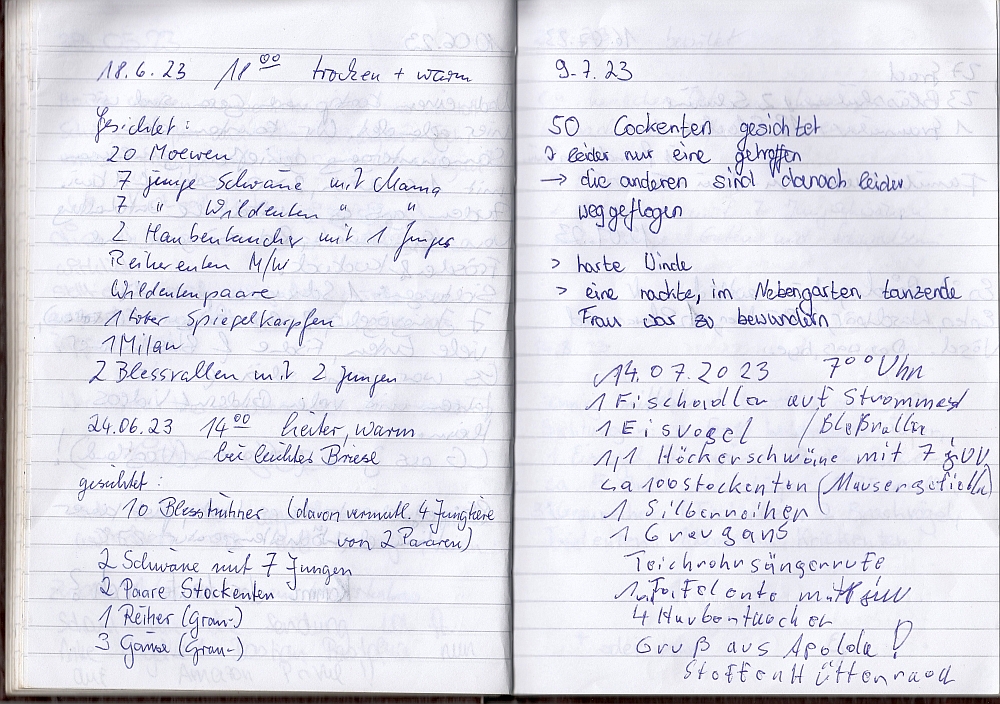 18.6.23 18⁰⁰ trocken + warm
Gesichtet:
20 Moewen
7 junge Schwäne mit Mama
7 " Wildenten " "
2 Haubentaucher mit 1 Junges
Reiherenten M/W
Wildentenpaare
1 toter Spiegelkarpfen
1 Milan
2 Blessrallen mit 2 Jungen
24.06.23 14⁰⁰ heiter, warm
bei leichter Briese
gesichtet:
10 Blesshühner (davon vermutl. 4 Jungtiere
von 2 Paaren)
2 Schwäne mit 7 Jungen
2 Paare Stockenten
1 Reiher (Grau-)
3 Gänse (Grau-)
9.7.23
50 Cockenten gesichtet
> leider nur eine getroffen
→ die anderen sind danach leider
weggeflogen
> harte Winde
> eine nackte, im Nebengarten tanzende
Frau war zu bewundern
14.07.2023 7⁰⁰ Uhr
1 Fischadler auf Strommast
1 Eisvogel / Bleßralle
1,1 Höckerschwäne mit 7 juv
ca 100 Stockenten (Mausergefieder)
1 Silberreiher
1 Graugans
Teichrohrsängerrufe
1 Tafelente mit juv
4 Haubentaucher
Gruß aus Apolda!
Steffen Hüttenrauch